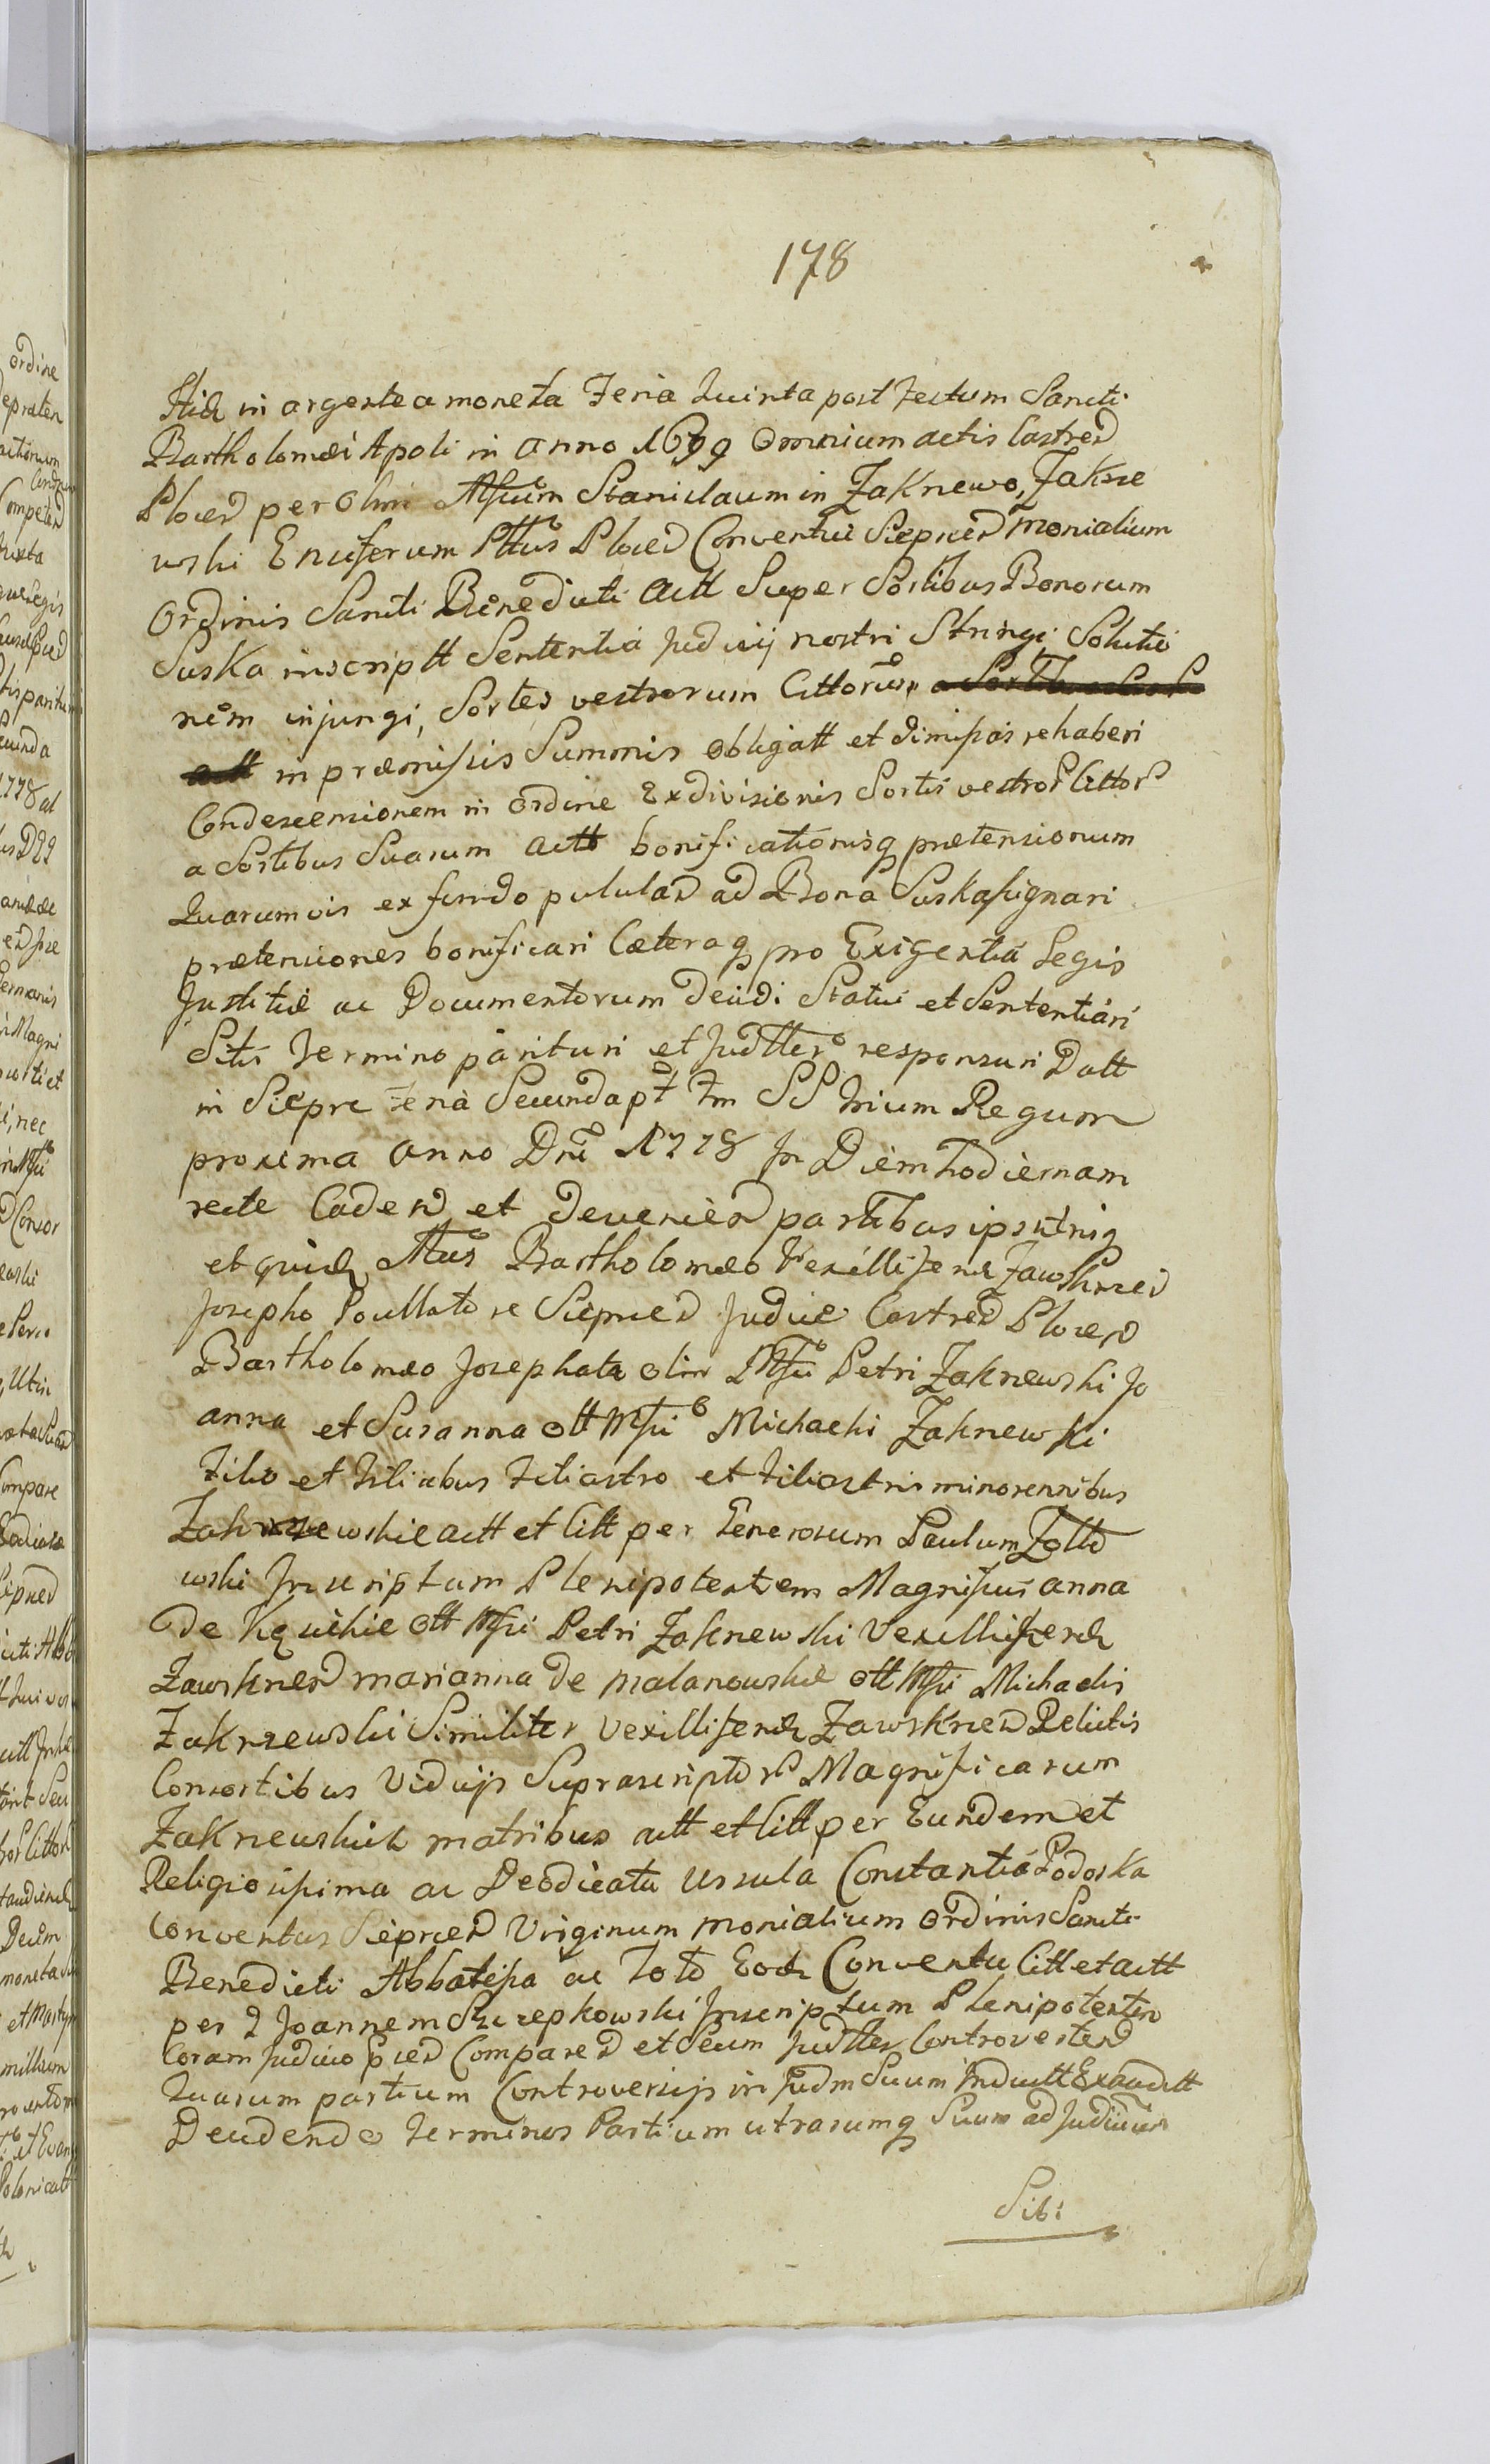 178
in argentea moneta Feria Quinta post Festum Sancti
Bartholomæi Apoli in Anno 1699 Omnium actis Castren
Plocen per Olim Mfcum Stanislaum in Zakrzewo, Zakrze
wski Ensiferum Plocen Conventui Sieprcen Monialium
Ordinis Sancti Benedicti Actt Super Sortibus Bonorum
Suska inscriptt Sententia Judicij nostri Stringi Solutio
nem injungi, Sortes vestrorum Cittorum
actt in præmissis Summis Obligatt et dimissas rehaberi
Condescensionem in Ordine Exdivisionis Sortis vestror Cittor
a Sortibus Suarum Actt bonificationisq prætensionum
Quarumvis ex fundo pululan ad Bona Suska signari
prætensiones bonificari Cæteraq pro Exigentia Legis
Justitiæ ac Documentorum Decidi Statui et Sententiari
Sitis Termino parituri et Judtter responsuri Datt
in Sieprc Feria Secunda pt Fm SS Trium Regum
proxima Anno Dni 1778 In Diem hodiernam
recte Caden et Devenien partibus ipsis utrisq
et quid Mcis Bartholomæo Vexilliferid Zawskrzen
Josepho Pocillatore Sieprcen Judice Castren Plocen
Bartholomæo Josephata olim Mfci Petri Zakrzewski Jo
anna et Susanna Ott Mfci Michaelis Zakrzewski
Filio et Filiabus Filiastro et Filiastris minorennibus
Zakrzewskie actt et Citt per Generosum Paulum Zołto
wski Inscriptum Plenipotentem Magnificis Anna
De Kęsickie Ott Mfci Petri Zakrzewski Vexilliferid
Zawskrzen Marianna de Malanowskie Ott Mfci Michaelis
Zakrzewski Similiter Vexilliferid Zawskrzen Relictis
Consortibus Viduijs Suprascriptor Magnificarum
Zakrzewskich matribus actt et Citt per Eundem et
Religiosissima ac Deodicata Ursula Constantia Podoska
Conventus Sieprcen Virginum Monialium Ordinis Sancti
Benedicti Abbatissa ac Toto Eod Conventu Citt et actt
per G Joannem Szczepkowski Inscriptum Plenipotenten
Coram Judicio Pncn Comparen et Secum Judtter Controverten
Quarum partium Controversijs in Judm Suum Induct Exaudett
Decidendo Terminos Partium utrarumq Suum ad Judicium
Sibi